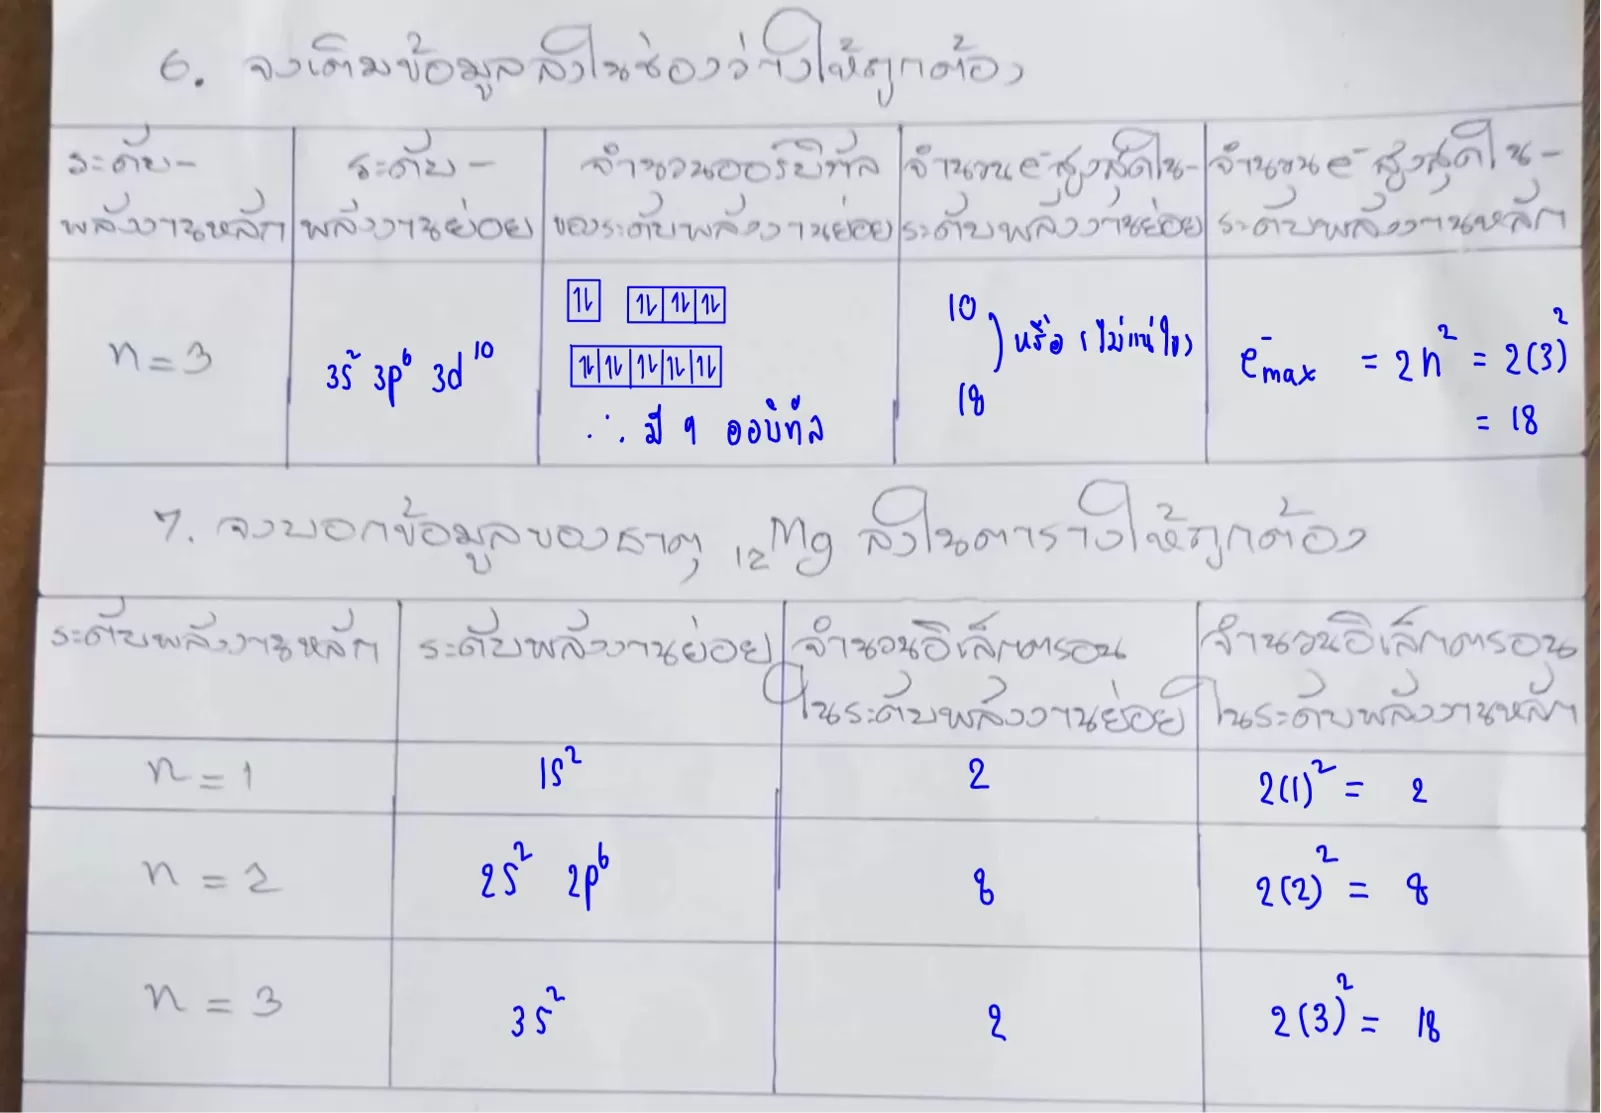 6. จงเติมข้อมูลลงในช่องว่างให้ถูกต้อง
ระดับ-
พลังงานหลัก
ระดับ-
พลังงานย่อย
จำนวนออร์บิทัล
ของระดับพลังงานย่อย
จำนวนe⁻สูงสุดใน-
ระดับพลังงานย่อย
จำนวนe⁻สูงสุดใน-
ระดับพลังงานหลัก
n = 3
3s² 3p⁶ 3d¹⁰
1l 1l 1l 1l
1l 1l 1l 1l 1l
∴ มี 9 ออบิทัล
10
) หรือ (ไม่แน่ใจ)
18
e⁻max = 2n² = 2(3)²
= 18
7. จงบอกข้อมูลของธาตุ ₁₂Mg ลงในตารางให้ถูกต้อง
ระดับพลังงานหลัก
ระดับพลังงานย่อย
จำนวนอิเล็กตรอน
ในระดับพลังงานย่อย
จำนวนอิเล็กตรอน
ในระดับพลังงานหลัก
n = 1 1s² 2 2(1)² = 2
n = 2 2s² 2p⁶ 8 2(2)² = 8
n = 3 3s² 2 2(3)² = 18